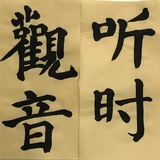 觀音
听时